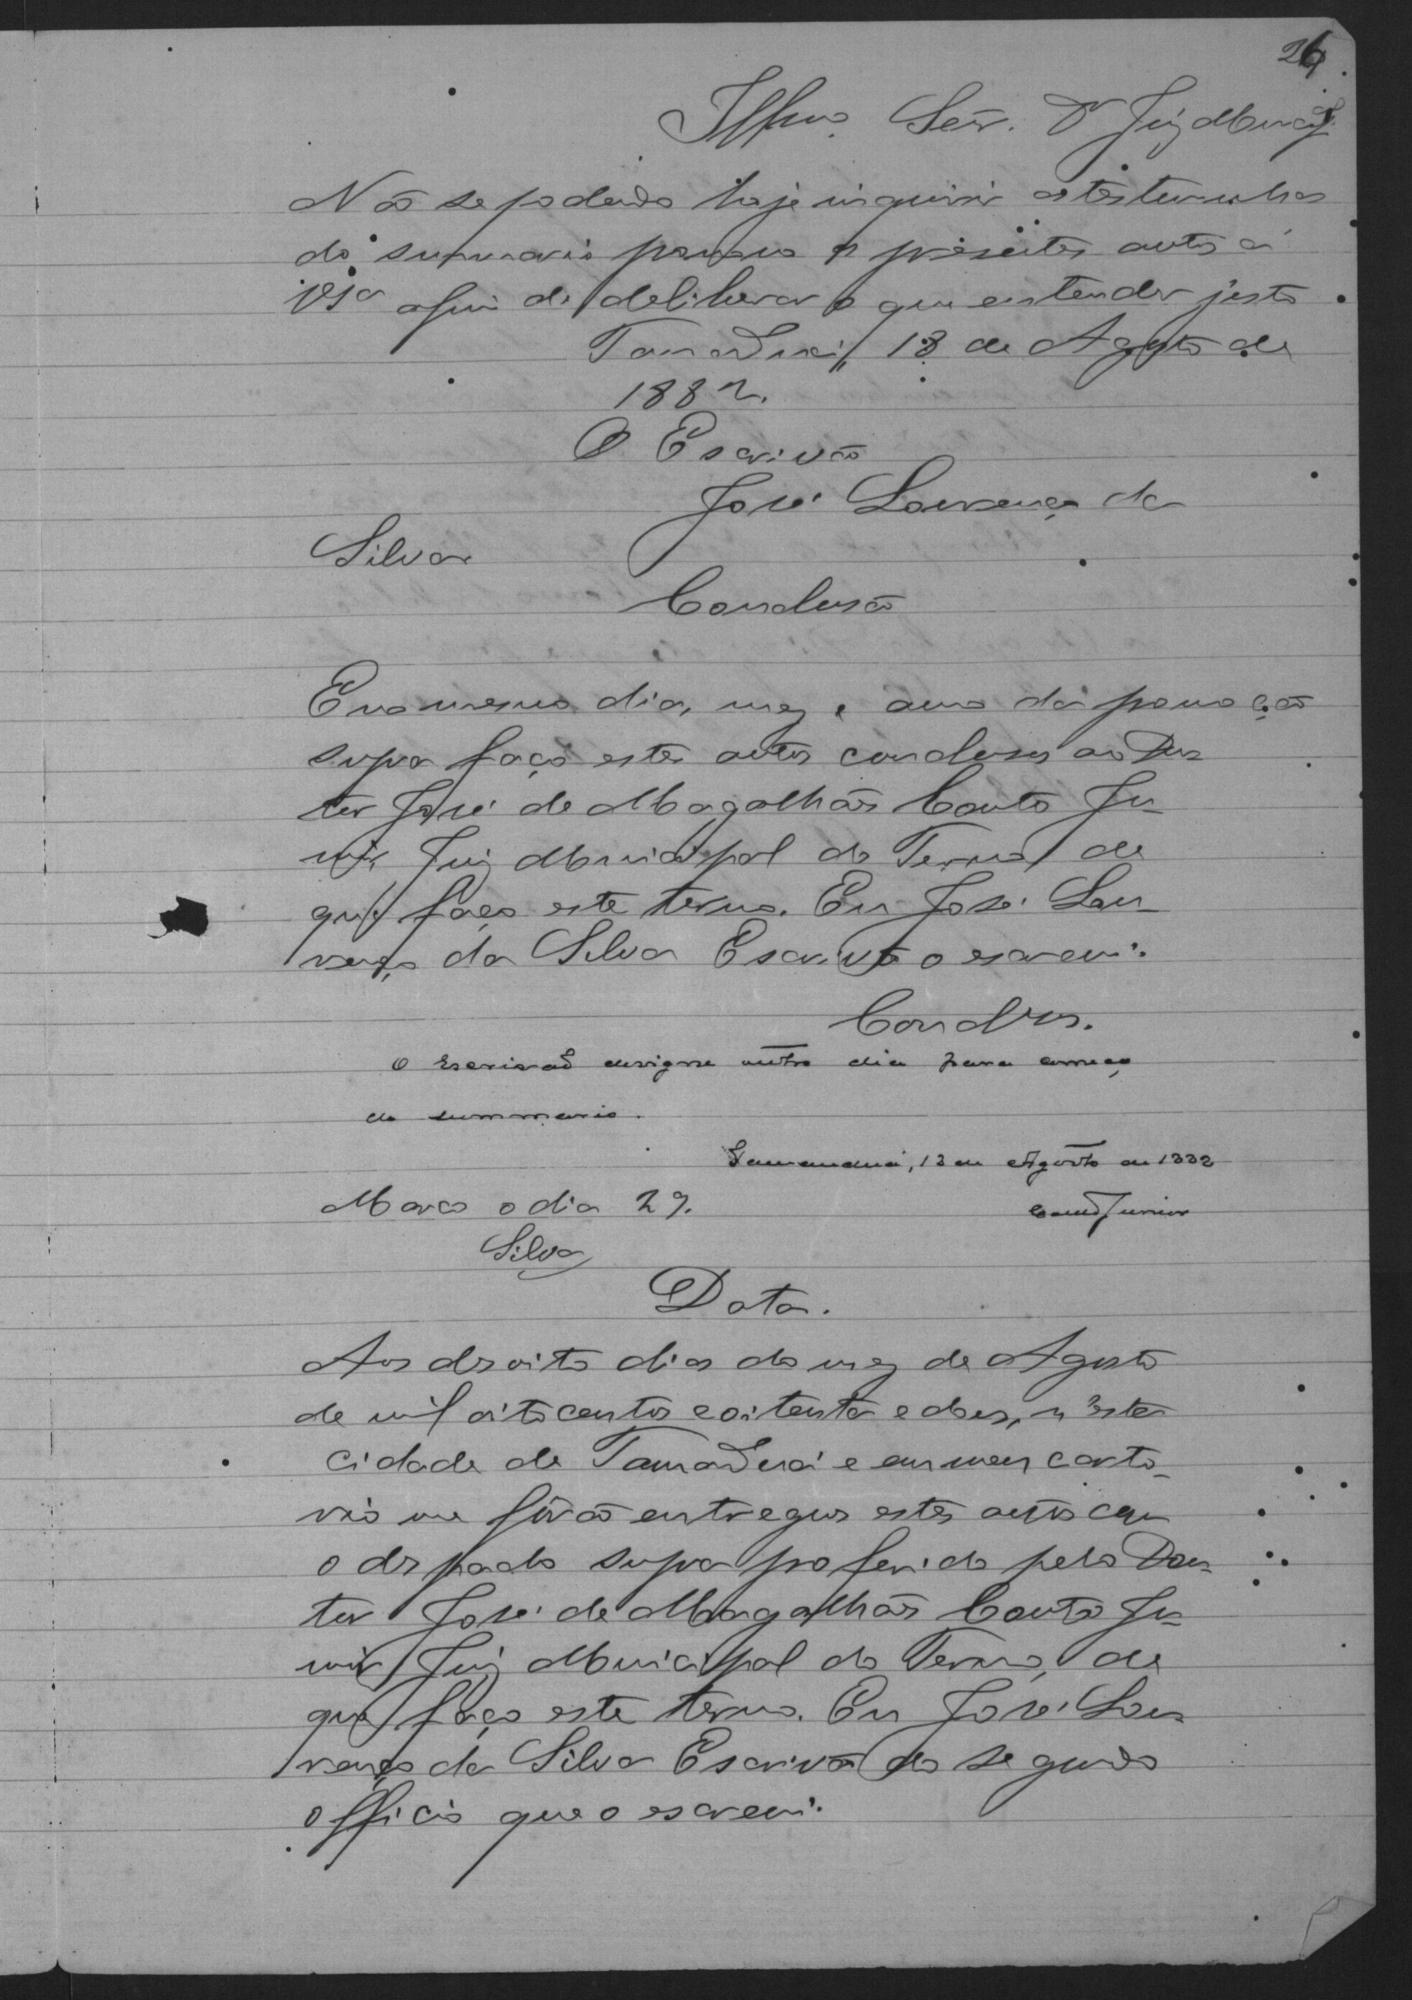 26
Illmo. Señr. Dr Juiz Municipal
Não se podendo hoje inquirir as testemunhas
do summario passo os presentes autos á
VSa afim de deliberar o que entender justo
Tamanduá, 18 de Agosto de
1882.
O Escrivão
José Lourenço da
Silva
Conclusão
E no mesmo dia, mez e anno da
supra faço estes autos conclusos ao Dou-
tor José de Magalhães Couto Ju-
nior Juiz Municipal do Termo, de
que faço este termo. Eu José Lou-
renço da Silva Escrivão o escrevi.
Conclsos.
O Escrivão designe outro dia para começo
do summario.
Tamanduá, 18 de Agosto de 1882
Couto Junior
Marco o dia 29.
Silva
Data.
Aos desoito dias do mez de Agosto
de mil oitocentos e oitenta e dous, n'esta
cidade de Tamanduá e em meu carto-
rio me fôrão entregues estes autos com
o despacho supra proferido pelo Dou-
tor José de Magalhães Couto Ju-
nior Juiz Municipal do Termo, de
que faço este termo. Eu José Lou-
renço da Silva Escrivão do segundo
officio que o escrevi.